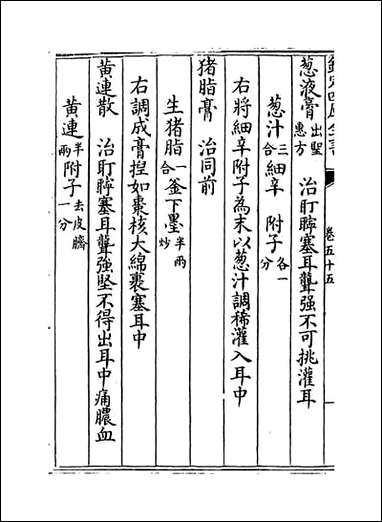 欽定四庫全書 卷五十五
葱液膏 出聖惠方 治盯聹塞耳聾强不可挑灌耳
葱汁 三合 細辛 附子 各一分
右將細辛附子為末以葱汁調稀灌入耳中
猪脂膏 治同前
生猪脂 一合 釜下墨 半兩炒
右調成膏揑如棗核大綿裹塞耳中
黄連散 治盯聹塞耳聾強堅不得出耳中痛膿血
黄連 半兩 附子 去皮臍一分